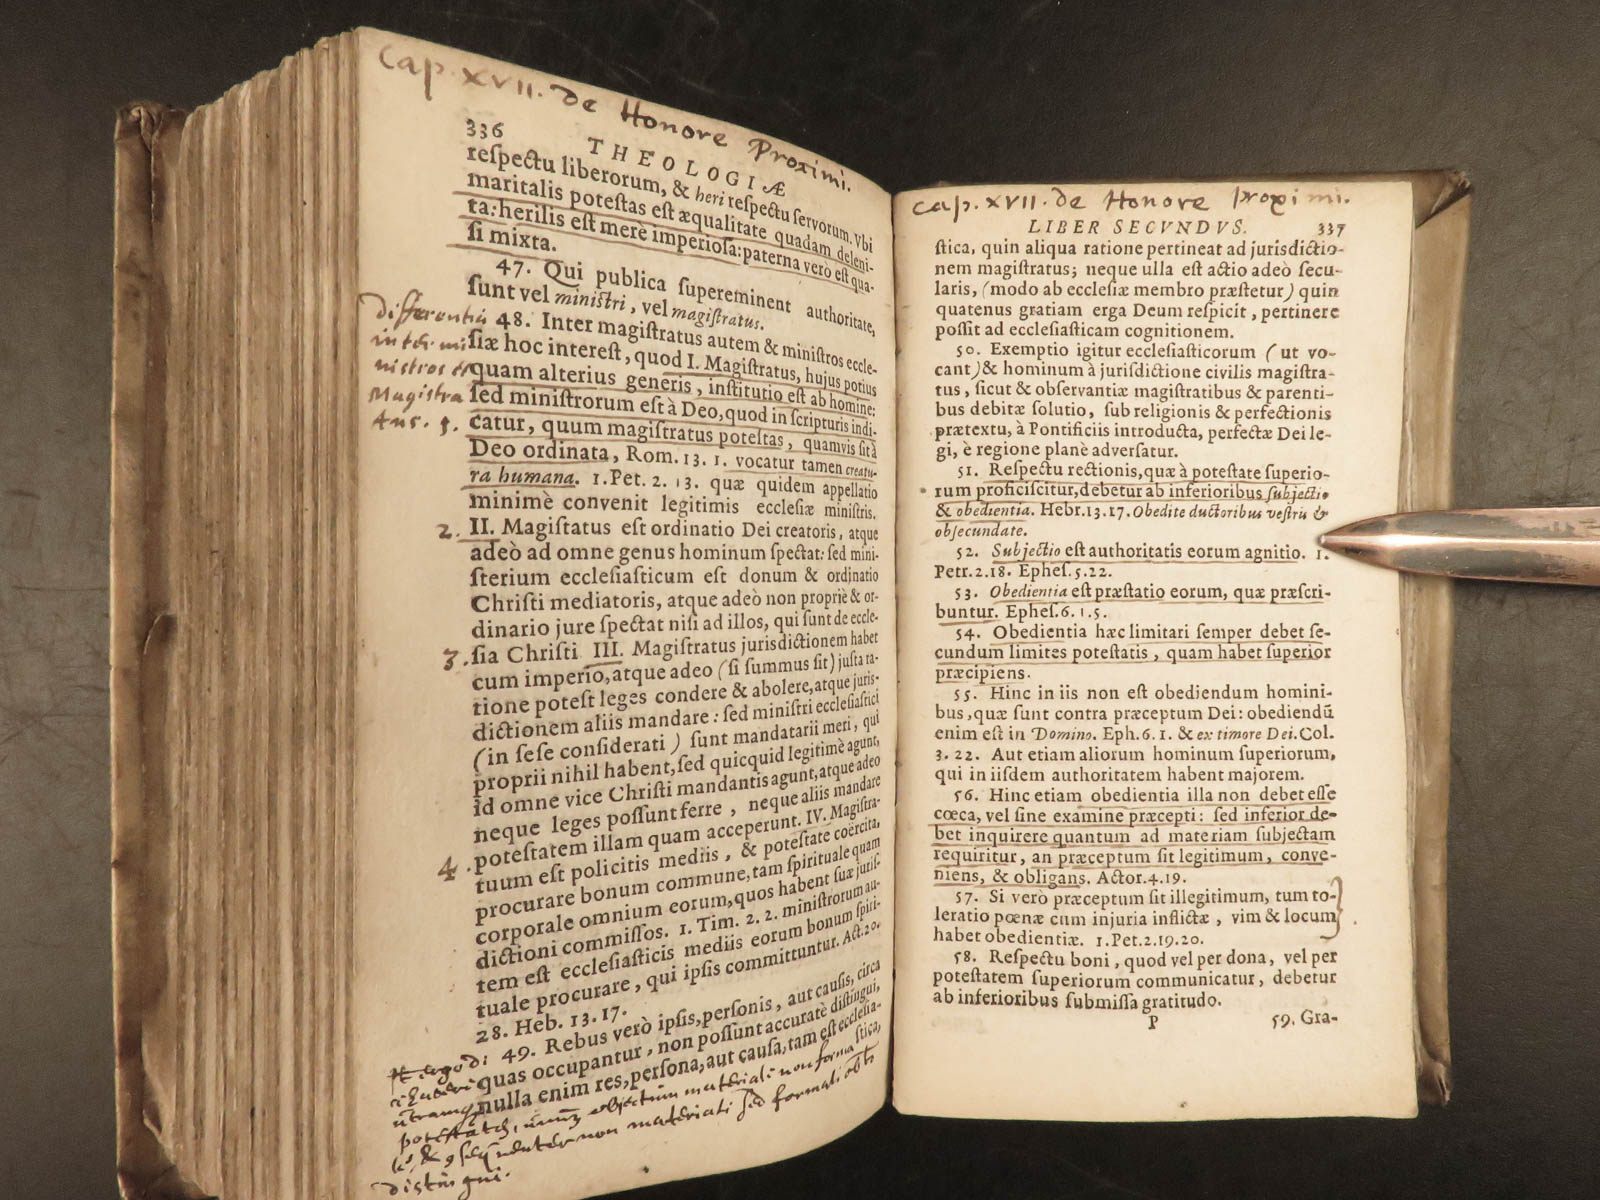 Cap. XVII. de Honore Proximi.
336
THEOLOGIÆ
reſpectu liberorum, & heri reſpectu ſervorum. Vbi
maritalis poteſtas eſt æqualitate quadam deleni-
ta: herilis eſt merè imperioſa: paterna verò eſt qua-
ſi mixta.
47. Qui publica ſupereminent authoritate,
ſunt vel miniſtri, vel magiſtratus.
48. Inter magiſtratus autem & miniſtros eccle-
ſiæ hoc intereſt, quod I. Magiſtratus, hujus potius
quam alterius generis, inſtitutio eſt ab homine:
ſed miniſtrorum eſt à Deo, quod in ſcripturis indi-
catur, quum magiſtratus poteſtas, quamvis ſit à
Deo ordinata, Rom. 13. 1. vocatur tamen creatu-
ra humana. 1. Pet. 2. 13. quæ quidem appellatio
minimè convenit legitimis eccleſiæ miniſtris.
II. Magiſtatus eſt ordinatio Dei creatoris, atque
adeò ad omne genus hominum ſpectat: ſed mini-
ſterium eccleſiaſticum eſt donum & ordinatio
Chriſti mediatoris, atque adeò non propriè & or-
dinario jure ſpectat niſi ad illos, qui ſunt de eccle-
ſia Chriſti III. Magiſtratus jurisdictionem habet
cum imperio, atque adeo (ſi ſummus ſit) juſta ra-
tione poteſt leges condere & abolere, atque juris-
dictionem aliis mandare: ſed miniſtri eccleſiaſtici
(in ſeſe conſiderati) ſunt mandatarii meri, qui
proprii nihil habent, ſed quicquid legitimè agunt,
id omne vice Chriſti mandantis agunt, atque adeo
neque leges poſſunt ferre, neque aliis mandare
poteſtatem illam quam acceperunt. IV. Magiſtra-
tuum eſt policitis mediis, & poteſtate coërcita,
procurare bonum commune, tam ſpirituale quam
corporale omnium eorum, quos habent ſuæ juriſ-
dictioni commiſſos. 1. Tim. 2. 2. miniſtrorum au-
tem eſt eccleſiaſticis mediis eorum bonum ſpiri-
tuale procurare, qui ipſis committuntur. Act. 20.
28. Heb. 13. 17.
49. Rebus verò ipſis, perſonis, aut cauſis, circa
quas occupantur, non poſſunt accuratè diſtingui,
nulla enim res, perſona, aut cauſa, tam eſt eccleſia-
ſtica,
differentia
inter mi
nistros et
Magistra
tus. 1.
2.
3.
4.
ergo
potestates, objectum materiale non forma
neuter non materiali sed formali
distingui.
Cap. XVII. de Honore Proximi.
LIBER SECVNDVS. 337
ſtica, quin aliqua ratione pertineat ad jurisdictio-
nem magiſtratus; neque ulla eſt actio adeò ſecu-
laris, (modo ab eccleſiæ membro præſtetur) quin
quatenus gratiam erga Deum reſpicit, pertinere
poſſit ad eccleſiaſticam cognitionem.
50. Exemptio igitur eccleſiaſticorum (ut vo-
cant) & hominum à jurisdictione civilis magiſtra-
tus, ſicut & obſervantiæ magiſtratibus & parenti-
bus debitæ ſolutio, ſub religionis & perfectionis
prætextu, à Pontificiis introducta, perfectæ Dei le-
gi, è regione planè adverſatur.
51. Reſpectu rectionis, quæ à poteſtate ſuperio-
rum proficiſcitur, debetur ab inferioribus ſubjectio
& obedientia. Hebr. 13. 17. Obedite ductoribus veſtris &
obſecundate.
52. Subjectio eſt authoritatis eorum agnitio. 1.
Petr. 2. 18. Epheſ. 5. 22.
53. Obedientia eſt præſtatio eorum, quæ præſcri-
buntur. Epheſ. 6. 1. 5.
54. Obedientia hæc limitari ſemper debet ſe-
cundum limites poteſtatis, quam habet ſuperior
præcipiens.
55. Hinc in iis non eſt obediendum homini-
bus, quæ ſunt contra præceptum Dei: obediendū
enim eſt in Domino. Eph. 6. 1. & ex timore Dei. Col.
3. 22. Aut etiam aliorum hominum ſuperiorum,
qui in iiſdem authoritatem habent majorem.
56. Hinc etiam obedientia illa non debet eſſe
cœca, vel ſine examine præcepti: ſed inferior de-
bet inquirere quantum ad materiam ſubjectam
requiritur, an præceptum ſit legitimum, conve-
niens, & obligans. Actor. 4. 19.
57. Si verò præceptum ſit illegitimum, tum to-
leratio pœnæ cum injuria inflictæ, vim & locum
habet obedientiæ. 1. Pet. 2. 19. 20.
58. Reſpectu boni, quod vel per dona, vel per
poteſtatem ſuperiorum communicatur, debetur
ab inferioribus ſubmiſſa gratitudo.
P 59. Gra-